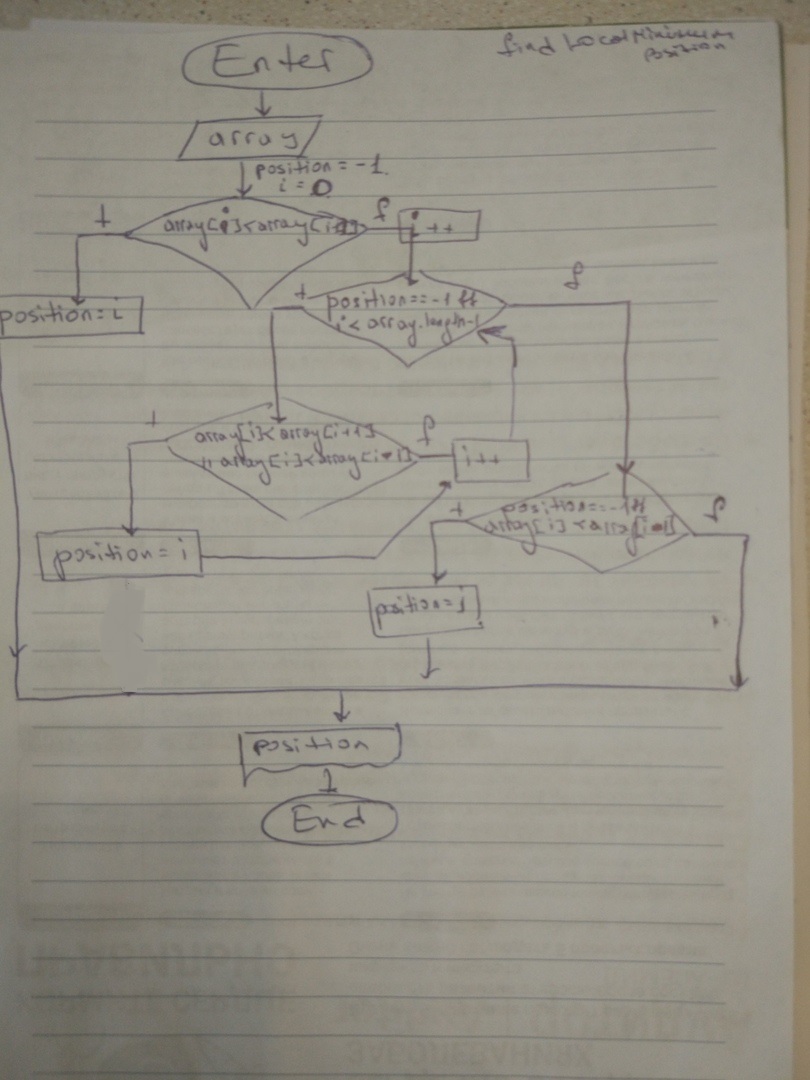 find Local Minimum
position
Enter
array
position = -1
i = 0
t
array[i]<array[i+1]
f
i++
position = i
t
position == -1 &&
i < array.length-1
f
t
array[i]<array[i+1]
&& array[i]<array[i-1]
f
i++
position = i
t
position == -1 &&
array[i]<array[i-1]
f
position = i
position
End
ПРАВИЛЬНО
ЗАБОЛЕВАНИЯХ